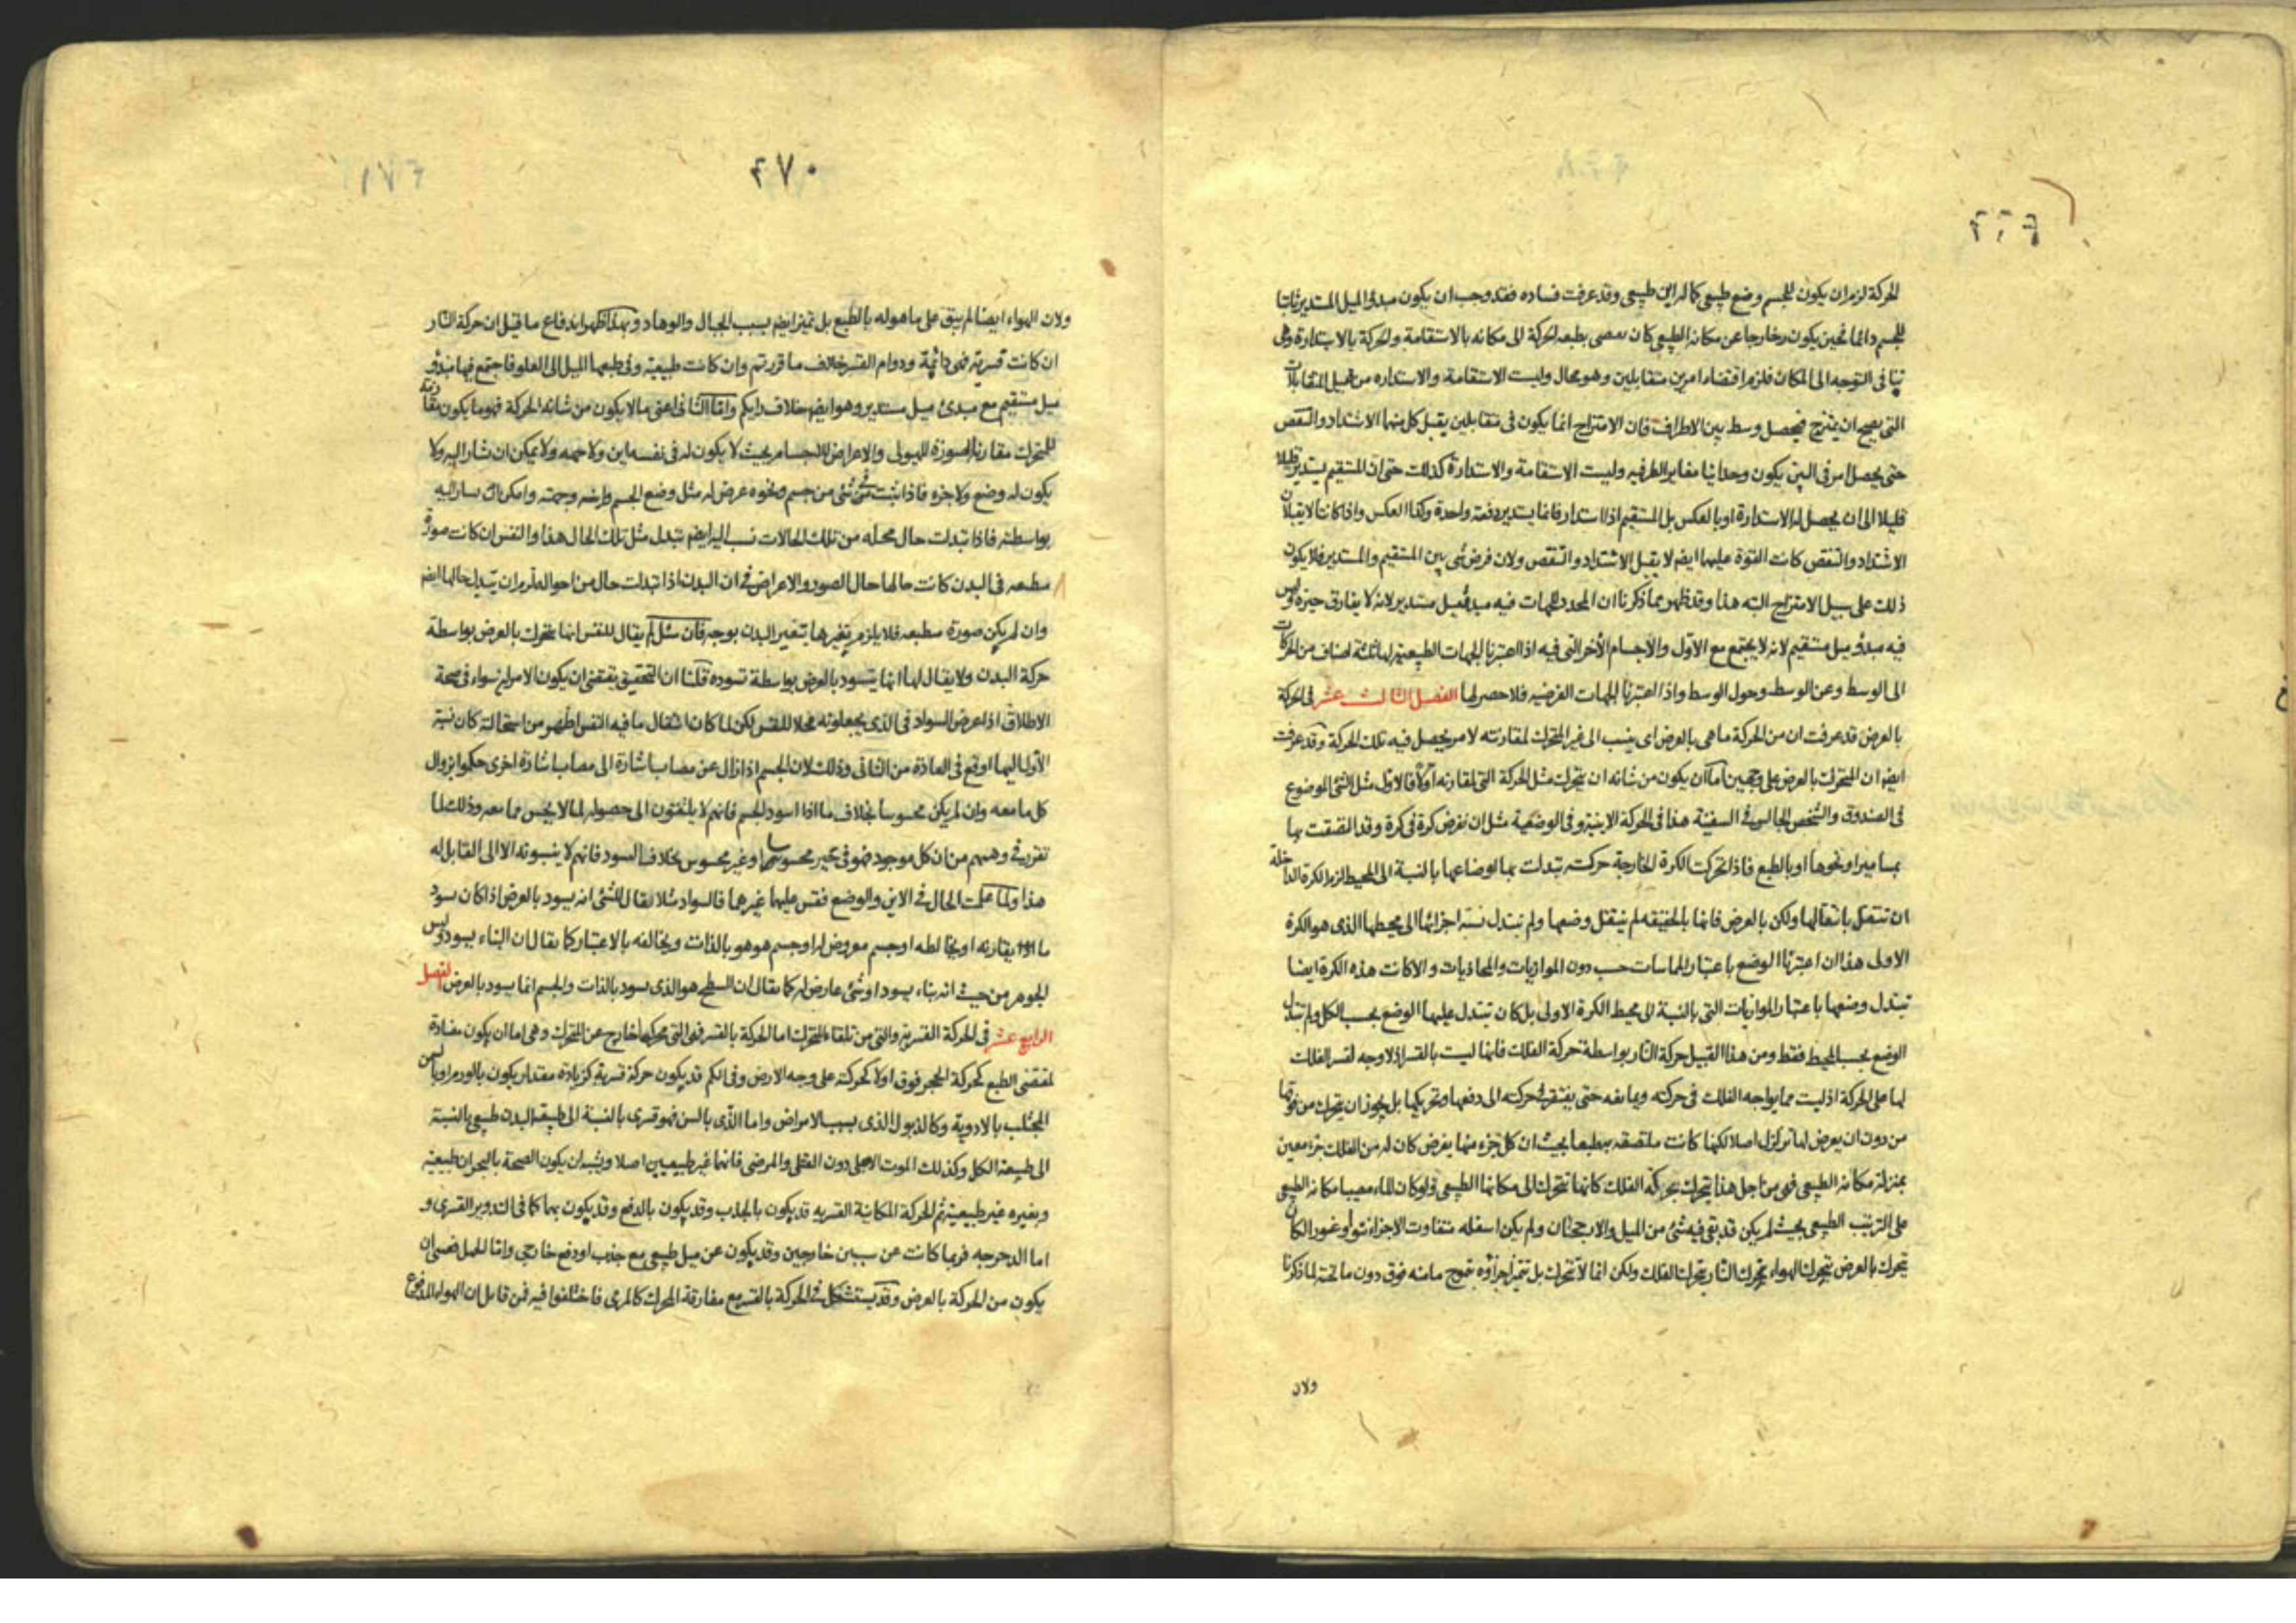 الحركة لزم ان يكون للجسم وضع طبيعى كما له اين طبيعى وقد عرفت فساده فقد وجب ان يكون مبدؤ الميل المستدير ثابتا
للجسم دائما فحين يكون خارجا عن مكانه الطبيعى كان بطبعه لحركة الى مكانه بالاستقامة ولحركة بالاستدارة وهى
فى التوجه الى المكان فلزم اقتضاء امرين متقابلين وهو محال وليست الاستقامة والاستداره من قبيل المتقابلات
التى يصح ان يمتزج فيحصل وسط بين الاطراف فان الامتزاج انما يكون فى متقابلين يقبل كل منهما الاشتداد والتنقص
حتى يحصل امر فى البين يكون وحدانيا مغاير الطرفيه وليست الاستقامة والاستدارة كذلك حتى ان المستقيم يستدير قليلا
قليلا الى ان يحصل له الاستدارة او بالعكس بل المستقيم اذا استدار فانما يستدير دفعة واحدة وكذا العكس واذا كانتا لا يقبلان
الاشتداد والتنقص كانت القوة عليهما ايضا لا يقبل الاشتداد والتنقص ولان فرض شى بين المستقيم والمستدير فلا يكون
ذلك على سبيل الامتزاج البته هذا وقد ظهر مما ذكرنا ان المحدد للجهات فيه مبدؤ ميل مستدير لانه لا يفارق حيزه وليس
فيه مبدؤ ميل مستقيم لانه لا يجتمع مع الاول والاجسام الأخر التى فيه اذا اعتبرنا الجهات الطبيعية لها ثلثة اصناف من الحركات
الى الوسط وعن الوسط وحول الوسط واذا اعتبرنا الجهات الفرضيه فلا حصر لها الفصل الثالث عشر فى الحركة
بالعرض قد عرفت ان من الحركة ما هى بالعرض اى ينسب الى غير المتحرك لمقارنته لا مر يحصل فيه تلك الحركة وقد عرفت
ايضا ان المتحرك بالعرض على وجهين اما ان يكون من شانه ان يتحرك مثل الحركة التى لمقارنه اولا فالاول مثل الشئ الموضوع
فى الصندوق والشخص الجالس فى السفينة هذا فى الحركة الاينية وفى الوضعية مثل ان نفرض كرة فى كرة وقد التصقت بها
بمسامير او نحوها او بالطبع فاذا تحركت الكرة الخارجة حركت تبدلت بها اوضاعها بالنسبة الى المحيط لزم الكرة الداخلة
ان تنتقل بانتقالها ولكن بالعرض فانها بالحقيقه لم ينتقل وضعها ولم تبتدل نسبة اجزائها الى محيطها الذى هو الكرة
الاولى هذا ان اعتبرنا الوضع باعتبار المماسات حسب دون الموازيات والمحاذيات والا كانت هذه الكرة ايضا
تبتدل وضعها باعتبار الموازيات التى بالنسبة الى محيط الكرة الاولى بل كان يتبدل عليها الوضع بحسب الكل ولم تبتدل
الوضع بحسب المحيط فقط ومن هذا القبيل حركة النار بواسطة حركة الفلك فانها ليست بالقسر اذ لا وجه لقسر الفلك
لها على الحركة اذ ليست مما يواجه الفلك فى حركته ويمانعه حتى يفتقر حركته الى دفعها وتحريكها بل يجوز ان يتحرك من فوقها
من دون ان يعرض لها تزلزل اصلا لكنها كانت ملتصقه بطبعها بحيث ان كل جزء منها يفرض كان له من الفلك جزء معين
بمنزلة مكانه الطبيعى فهى من اجل هذا يتحرك بحركة الفلك كانها تتحرك الى مكانها الطبيعى ولو كان للماء مصيبا مكانه الطبيعى
على الترتيب الطبيعى بحيث لم يكن قد بقى فيه شئ من الميل والارجحنان ولم يكن اسفله متفاوت الاجزاء نتوا وغورا لكان
يتحرك بالعرض بتحرك الهواء بتحرك النار بتحرك الفلك ولكن انما لا تتحرك بل تتميز اجزاؤه بتموج ما منه فوق دون ما تحته لما ذكرنا
ولان
٤٧٠
ولان الهواء ايضا لم يبق على ما هو له بالطبع بل تميز ايضا بسبب الجبال والوهاد وبهذا ظهر اندفاع ما قيل ان حركة النار
ان كانت قسرية فهى دائمة ودوام القسر خلاف ما قررتم وان كانت طبيعية وفى طبعها الميل الى العلو فاجتمع فيها مبدؤ
ميل مستقيم مع مبدئ ميل مستدير وهو ايضا خلاف رايكم واما الثانى اعنى ما لا يكون من شانه الحركة فهو ما يكون مقارنته
للمتحرك مقارنة الصورة للهيولى والاعراض للاجسام بحيث لا يكون له فى نفسه اين ولا جهه ولا يمكن ان تشار اليه ولا
يكون له وضع ولا جزء فاذا ثبت فى شئ من جسم ونحوه عرض له مثل وضع الجسم واينه وجهته وامكن ان يشار اليه
بواسطته فاذا تبدلت حال محله من تلك الحالات نسب اليه ايضا تبدل مثل تلك الحال هذا والنفس ان كانت صورة
منطبعه فى البدن كانت حالها حال الصور والاعراض فى ان البدن اذا تبدلت حال من احواله لزم ان يتبدل حالها ايضا
وان لم يكن صورة منطبعه فلا يلزم تغيرها بتغير البدن بوجه فان سئل لم يقال للنفس انها تتحرك بالعرض بواسطة
حركة البدن ولا يقال لها انها يتسود بالعرض بواسطة تسوده قلنا ان التحقيق يقتضى ان يكون الامران سواء فى صحة
الاطلاق اذا عرض السواد فى الذى يجعلونه محلا للنفس لكن لما كان انتقال ما فيه النفس اظهر من استحالته كان نسبة
الاول اليها اوقع فى العادة من الثانى وذلك لان الجسم اذا زال عن مصاب اشارة الى مصاب اشارة اخرى حكموا بزوال
كل ما معه وان لم يكن محسوسا بخلاف ما اذا اسود الجسم فانهم لا يلتفتون الى حصوله لما لا يحس مما معه وذلك لما
تقرر فى وهمهم من ان كل موجود فهو فى حيز محسوسا او غير محسوس بخلاف السود فانهم لا ينسبونه الا الى القابل له
هذا ولما علمت الحال فى الاين والوضع فقس عليهما غيرهما فالسواد مثلا يقال للشئ انه يسود بالعرض اذا كان يسود
ما يقارنه او يخالطه او جسم معروض له او جسم هو هو بالذات ويخالفه بالاعتبار كما يقال ان البناء يسود وليس
الجوهر من حيث انه بناء يسود او شئ عارض له كما يقال ان السطح هو الذى يسود بالذات والجسم انما يسود بالعرض الفصل
الرابع عشر فى الحركة القسرية والتى من تلقاء المتحرك اما الحركة بالقسر فهى التى محركها خارج عن المتحرك وهى اما ان يكون مضادة
لمقتضى الطبع كحركة الحجر فوق اولا كحركته على وجه الارض وفى الكم قد يكون حركة قسرية كزيادة مقدار يكون بالورم او بالسمن
المجتلب بالادوية وكالذبول الذى بسبب الامراض واما الذى بالسن فهو قسرى بالنسبة الى طبيعة البدن طبيعى بالنسبة
الى طبيعة الكل وكذلك الموت الاجلى دون القتلى والمرضى فانهما غير طبيعيين اصلا ويشبه ان يكون الصحة بالبحران طبيعية
وبغيره غير طبيعية ثم الحركة المكانية القسريه قد يكون بالجذب وقد يكون بالدفع وقد يكون بهما كما فى التدوير القسرى و
اما الدحرجه فربما كانت عن سببين خارجين وقد يكون عن ميل طبيعى مع جذب او دفع خارجى واما الحمل فعسى ان
يكون من الحركة بالعرض وقد يستشكل فى الحركة بالقسر مع مفارقة المحرك كالمرمى فاختلفوا فيه فمن قائل ان الهواء المدفوع